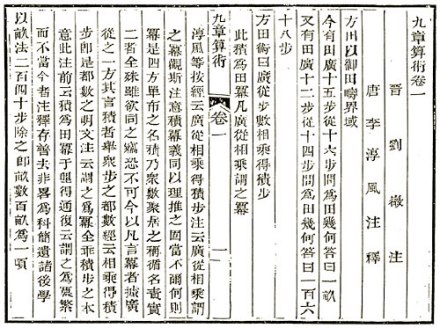 九章算術卷一
晉劉徽注
唐李淳風注釋
方田以御田疇界域
今有田廣十五步從十六步問爲田幾何荅曰一畝
又有田廣十二步從十四步問爲田幾何荅曰一百六
十八步
方田術曰廣從步數相乘得積步
此積爲田冪凡廣從相乘謂之冪
九章算術 卷一 一
淳風等按經云廣從相乘得積步注云廣從相乘謂
之冪觀斯注意積冪義同以理推之固當不爾何則
冪是四方單布之名積乃衆數聚居之稱循名責實
二者全殊雖欲同之竊恐不可今以凡言冪者據廣
從之一方其言積者舉衆步之都數經云相乘得積
步即是都數之明文注云謂之爲冪全乖積步之本
意此注前云積爲田冪于理得通復云謂之爲冪繁
而不當今者注釋存善去非畧爲科簡遺諸後學
以畝法二百四十步除之即畝數百畝爲一頃